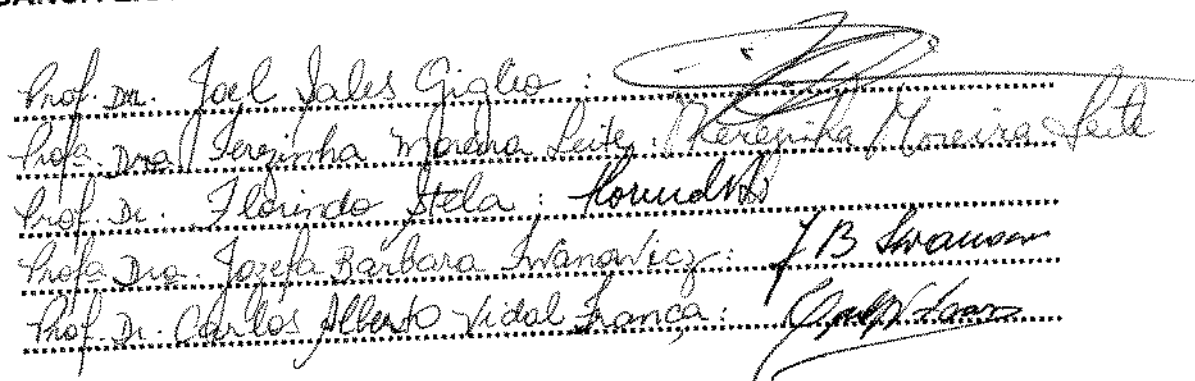 Prof. Dr. Joel Sales Giglio :
Profa. Dra. Terezinha Moreira Leite : Therezinha Moreira Leite
Prof. Dr. Florindo Stela :
Profa Dra. Jozefa Bárbara Iwanowicz : J B Iwanow
Prof. Dr. Carlos Alberto Vidal França :